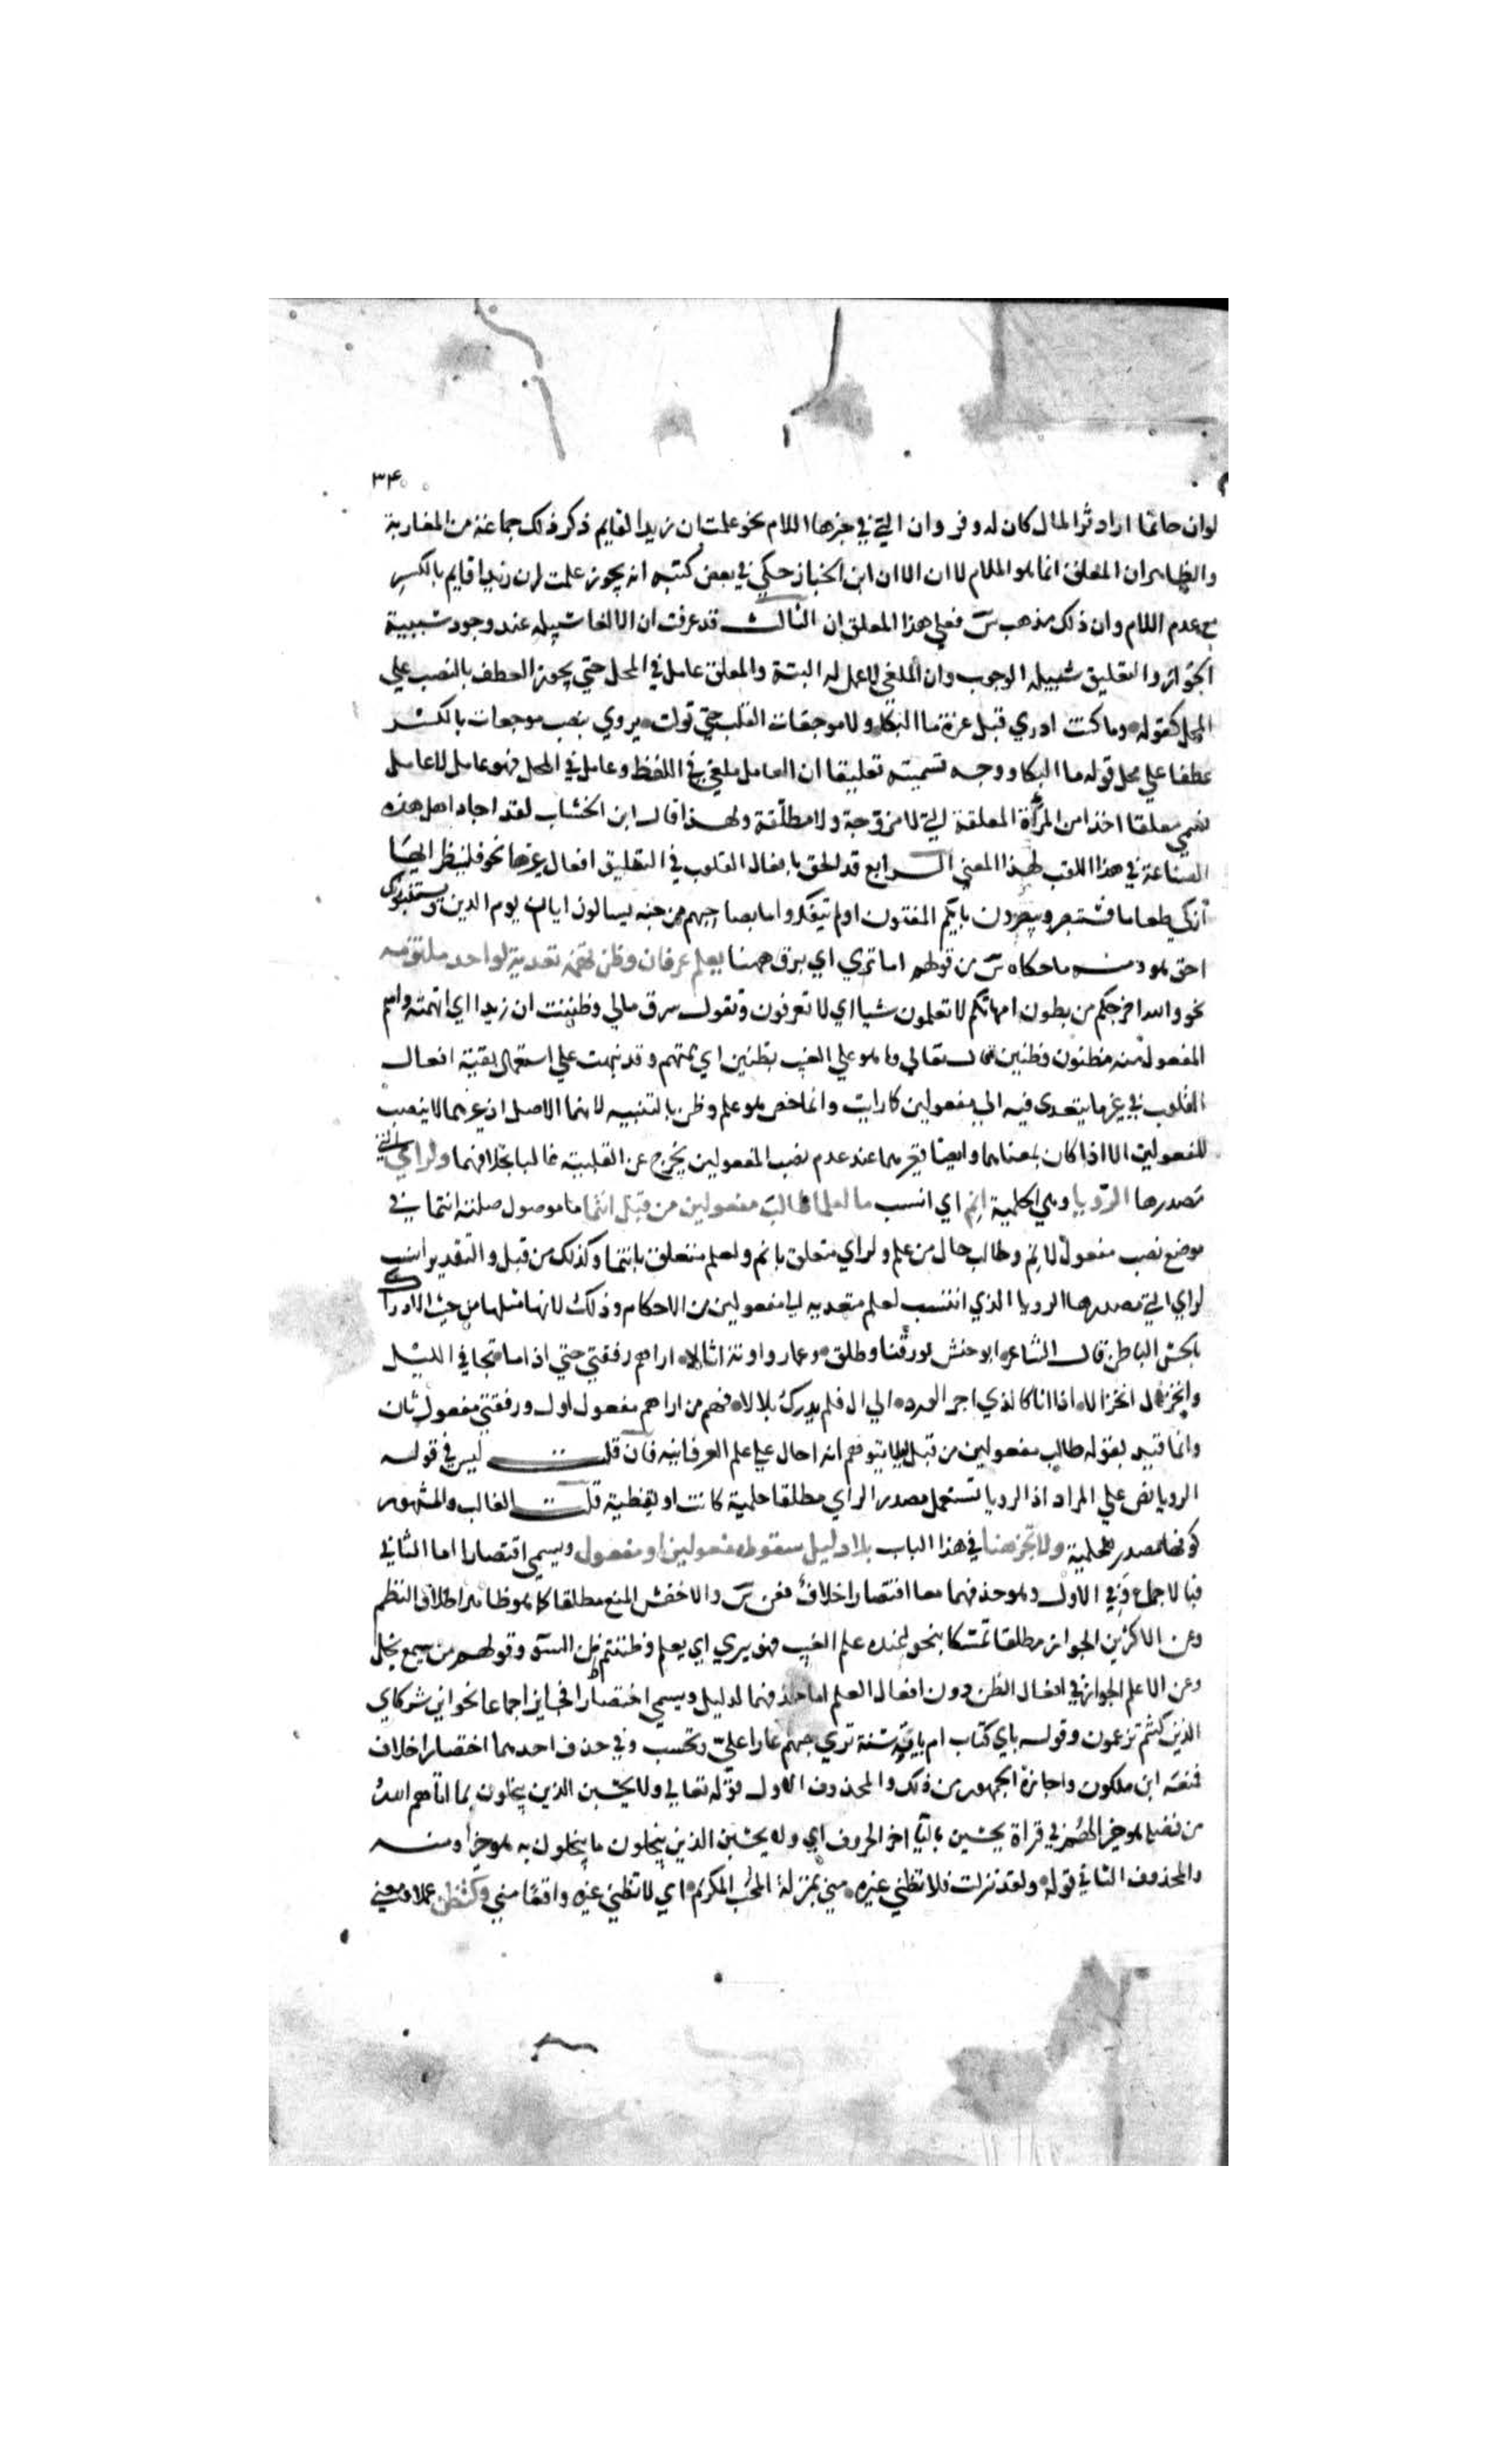 ٣٤٠
لو ان حاتما اراد ثرا المال كان له وفر وان التي في خبرها اللام نحو علمت ان زيدا لقايم ذكر ذلك جماعة من المغاربة
والظاهر ان المعلق انما هو اللام لا ان الا ان ابن الخباز حكي في بعض كتبه انه يجوز علمت ان زيدا قايم بالكسر
مع عدم اللام وان ذلك مذهب س فعلي هذا المعلق ان الثالث قد عرفت ان الالغا سبيله عند وجود سببية
الجواز والتعليق سبيله الوجوب وان الملغي لا عمل له البتة والمعلق عامل في المحل حتي يجوز العطف بالنصب علي
المحل كقوله وما كنت ادري قبل عزة ما البكا ولا موجعات القلب حتي تولت يروي بنصب موجعات بالكسر
عطفا علي محل قوله ما البكا ووجه تسميته تعليقا ان العامل ملغي في اللفظ وعامل في المحل فهو عامل لا عامل
فسمي معلقا اخذا من المرأة المعلقة التي لا مزوجة ولا مطلقة ولهذا قال ابن الخشاب لقد اجاد اهل هذه
الصناعة في هذا اللقب لهذا المعني الرابع قد الحق بافعال القلوب في التعليق افعال غيرها نحو فلينظر ايها
ازكي طعاما فستبصر ويبصرون بايكم المفتون اولم يتفكروا ما بصاحبهم من جنة يسالون ايان يوم الدين ويستنبونك
احق هو ومنه ما حكاه س من قولهم اما تري اي برق ههنا لعلم عرفان وظن تهمه تعدية لواحد ملتزمه
نحو والله اخرجكم من بطون امهاتكم لا تعلمون شيا اي لا تعرفون وتقول سرق مالي وظننت ان زيدا اي اتهمته واسم
المفعول منه مظنون وظنين قال تعالي وما هو علي الغيب بظنين اي بمتهم وقد نبهت علي استعمال بقية افعال
القلوب في غير ما يتعدي فيه الي مفعولين كارايت وانما خص هو علم وظن بالتنبيه لانهما الاصل اذ غيرهما لا ينصب
المفعولين الا اذا كان بمعناهما وايضا فغيرهما عند عدم نصب المفعولين يخرج عن القلبية غالبا بخلافهما ولراي التي
مصدرها الرويا وهي الحلمية انم اي انسب ما لعلما طالب مفعولين من قبل انتما ما موصول صلته انتما في
موضع نصب مفعول لانم وطالب حال من علم ولراي متعلق بانم ولعلم متعلق بانتما وكذلك من قبل والتقدير انسب
لراي التي مصدرها الرويا الذي انتسب لعلم متعدية الي مفعولين من الاحكام وذلك لانها مثلها من حيث الادراك
بالحس الباطن قال الشاعر ابو حنش يورقنا وطلق وعمار واونة اثالا اراهم رفقتي حتي اذا ما تجافي الليل
وانخزل انخزالا اذا انا كالذي اجري لورد الي ال فلم يدرك بلالا فهم من اراهم مفعول اول ورفقتي مفعول ثان
وانما قيد بقوله طالب مفعولين من قبل ليلا يتوهم انه احال علي علم العرفانية فان قلت ليس في قوله
الرويا نص علي المراد اذ الرويا تستعمل مصدر الراي مطلقا حلمية كانت او يقظية قلت الغالب والمشهور
كونها مصدر للحلمية ولا تجز هنا في هذا الباب بلا دليل سقوط مفعولين او مفعول ويسمي اقتصارا اما الثاني
فبالاجماع وفي الاول وهو حذفهما معا اقتصارا خلاف فعن س والاخفش المنع مطلقا كما هو ظاهر اطلاق النظم
وعن الاكثرين الجواز مطلقا تمسكا بنحو اعنده علم الغيب فهو يري اي يعلم وظننتم ظن السو وقولهم من يسمع يخل
وعن الاعلم الجواز في افعال الظن دون افعال العلم اما حذفهما لدليل ويسمي اختصارا فجايز اجماعا نحو اين شركاي
الذين كنتم تزعمون وقوله باي كتاب ام باية سنة تري حبهم عارا علي وتحسب وفي حذف احدهما اختصارا خلاف
فمنعه ابن ملكون واجازه الجمهور من ذلك والمحذوف الاول قوله تعالي ولا يحسبن الذين يبخلون بما اتاهم الله
من فضله هو خيرا لهم في قراة يحسبن باليا اخر الحروف اي ولا يحسبن الذين يبخلون ما يبخلون به هو خيرا ومنه
والمحذوف الثاني قوله ولقد نزلت فلا تظني غيره مني بمنزلة المحب المكرم اي لا تظني غيره واقعا مني وكتظن عملا ومعني